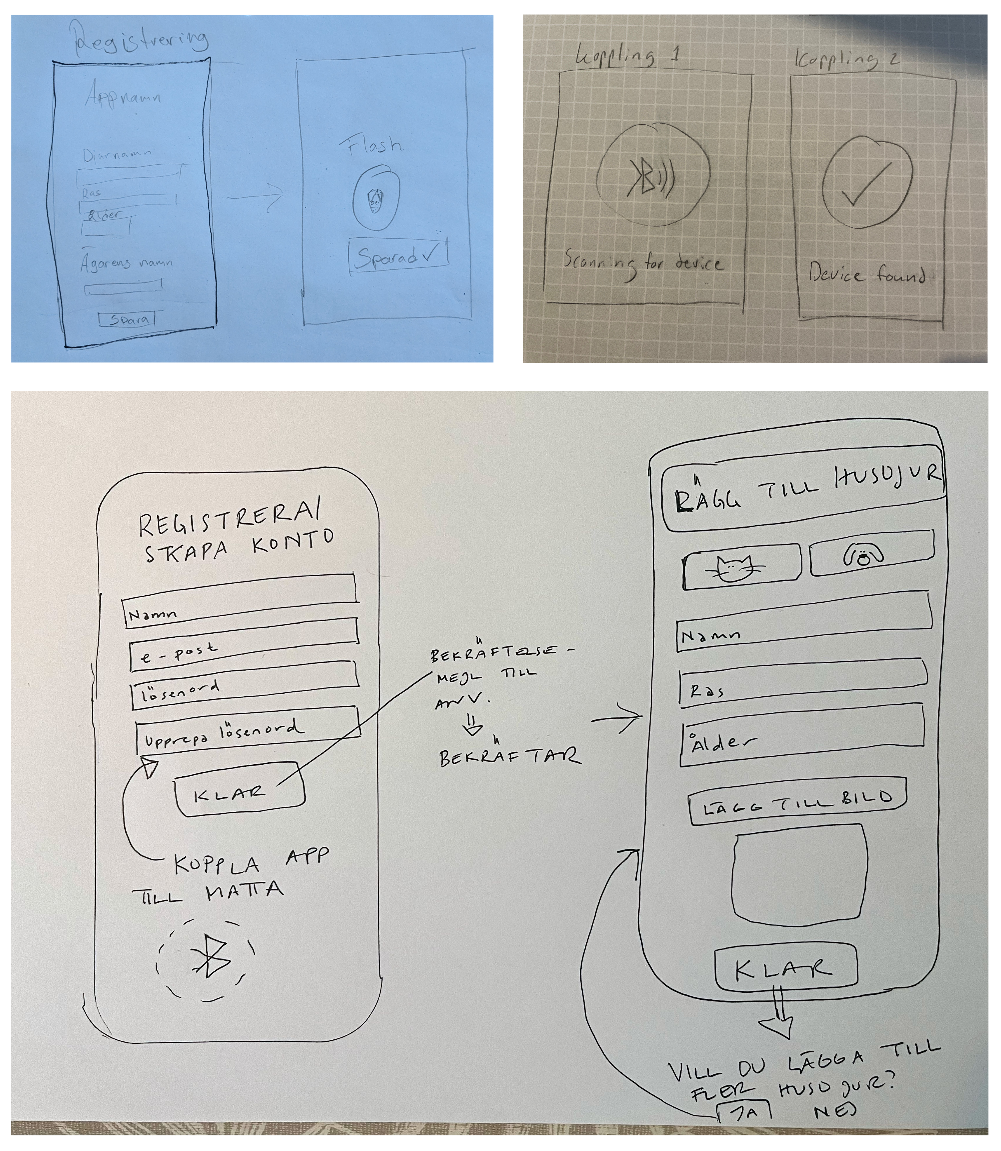 Registrering
Appnamn
Djurnamn
Ras
Ålder
Ägarens namn
Spara
Flash
Sparad ✓
Koppling 1
Scanning for device
Koppling 2
Device found
REGISTRERA/
SKAPA KONTO
Namn
e-post
lösenord
Upprepa lösenord
KLAR
KOPPLA APP
TILL MATTA
BEKRÄFTELSE-
MEJL TILL
ANV.
BEKRÄFTAR
LÄGG TILL HUSDJUR
Namn
Ras
Ålder
LÄGG TILL BILD
KLAR
VILL DU LÄGGA TILL
FLER HUSDJUR?
JA NEJ